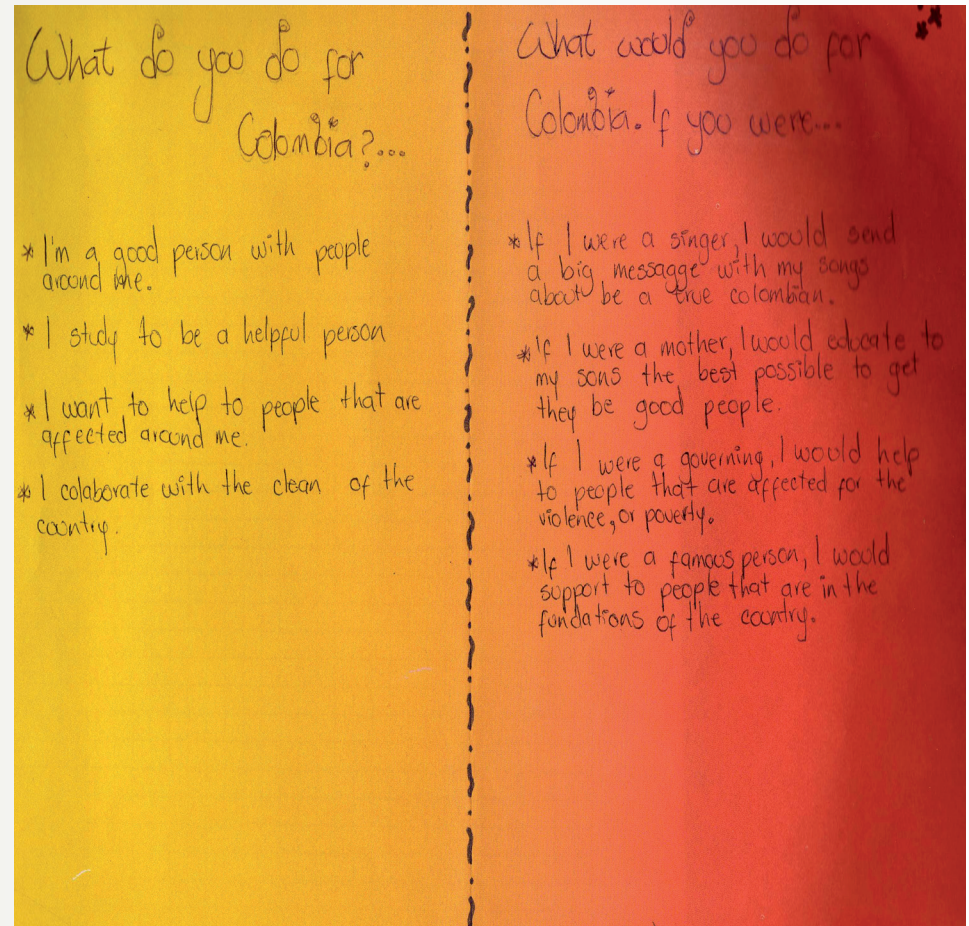 What do you do for
Colombia?...
* I'm a good person with people
around me.
* I study to be a helpful person
* I want to help to people that are
affected around me.
* I colaborate with the clean of the
country.
What would you do for
Colombia. If you were...
* If I were a singer, I would send
a big messagge with my songs
about be a true colombian.
* If I were a mother, I would educate to
my sons the best possible to get
they be good people.
* If I were a governing, I would help
to people that are affected for the
violence, or poverty.
* If I were a famous person, I would
support to people that are in the
fundations of the country.